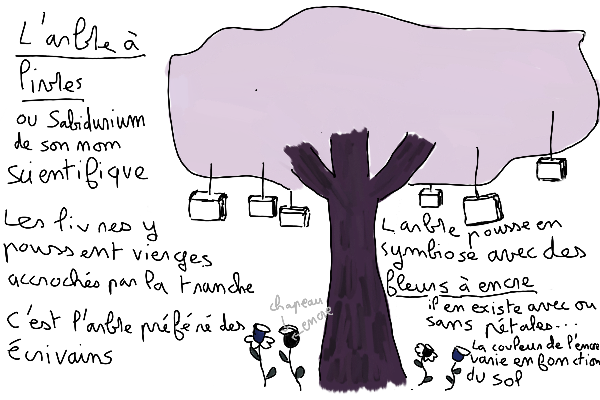 L'arbre à
livres
ou Sabidurium
de son nom
scientifique
Les livres y
poussent vierges
accrochés par la tranche
C'est l'arbre préféré des
écrivains
chapeau
d'encre
L'arbre pousse en
symbiose avec des
fleurs à encre
il en existe avec ou
sans pétales...
La couleur de l'encre
varie en fonction
du sol